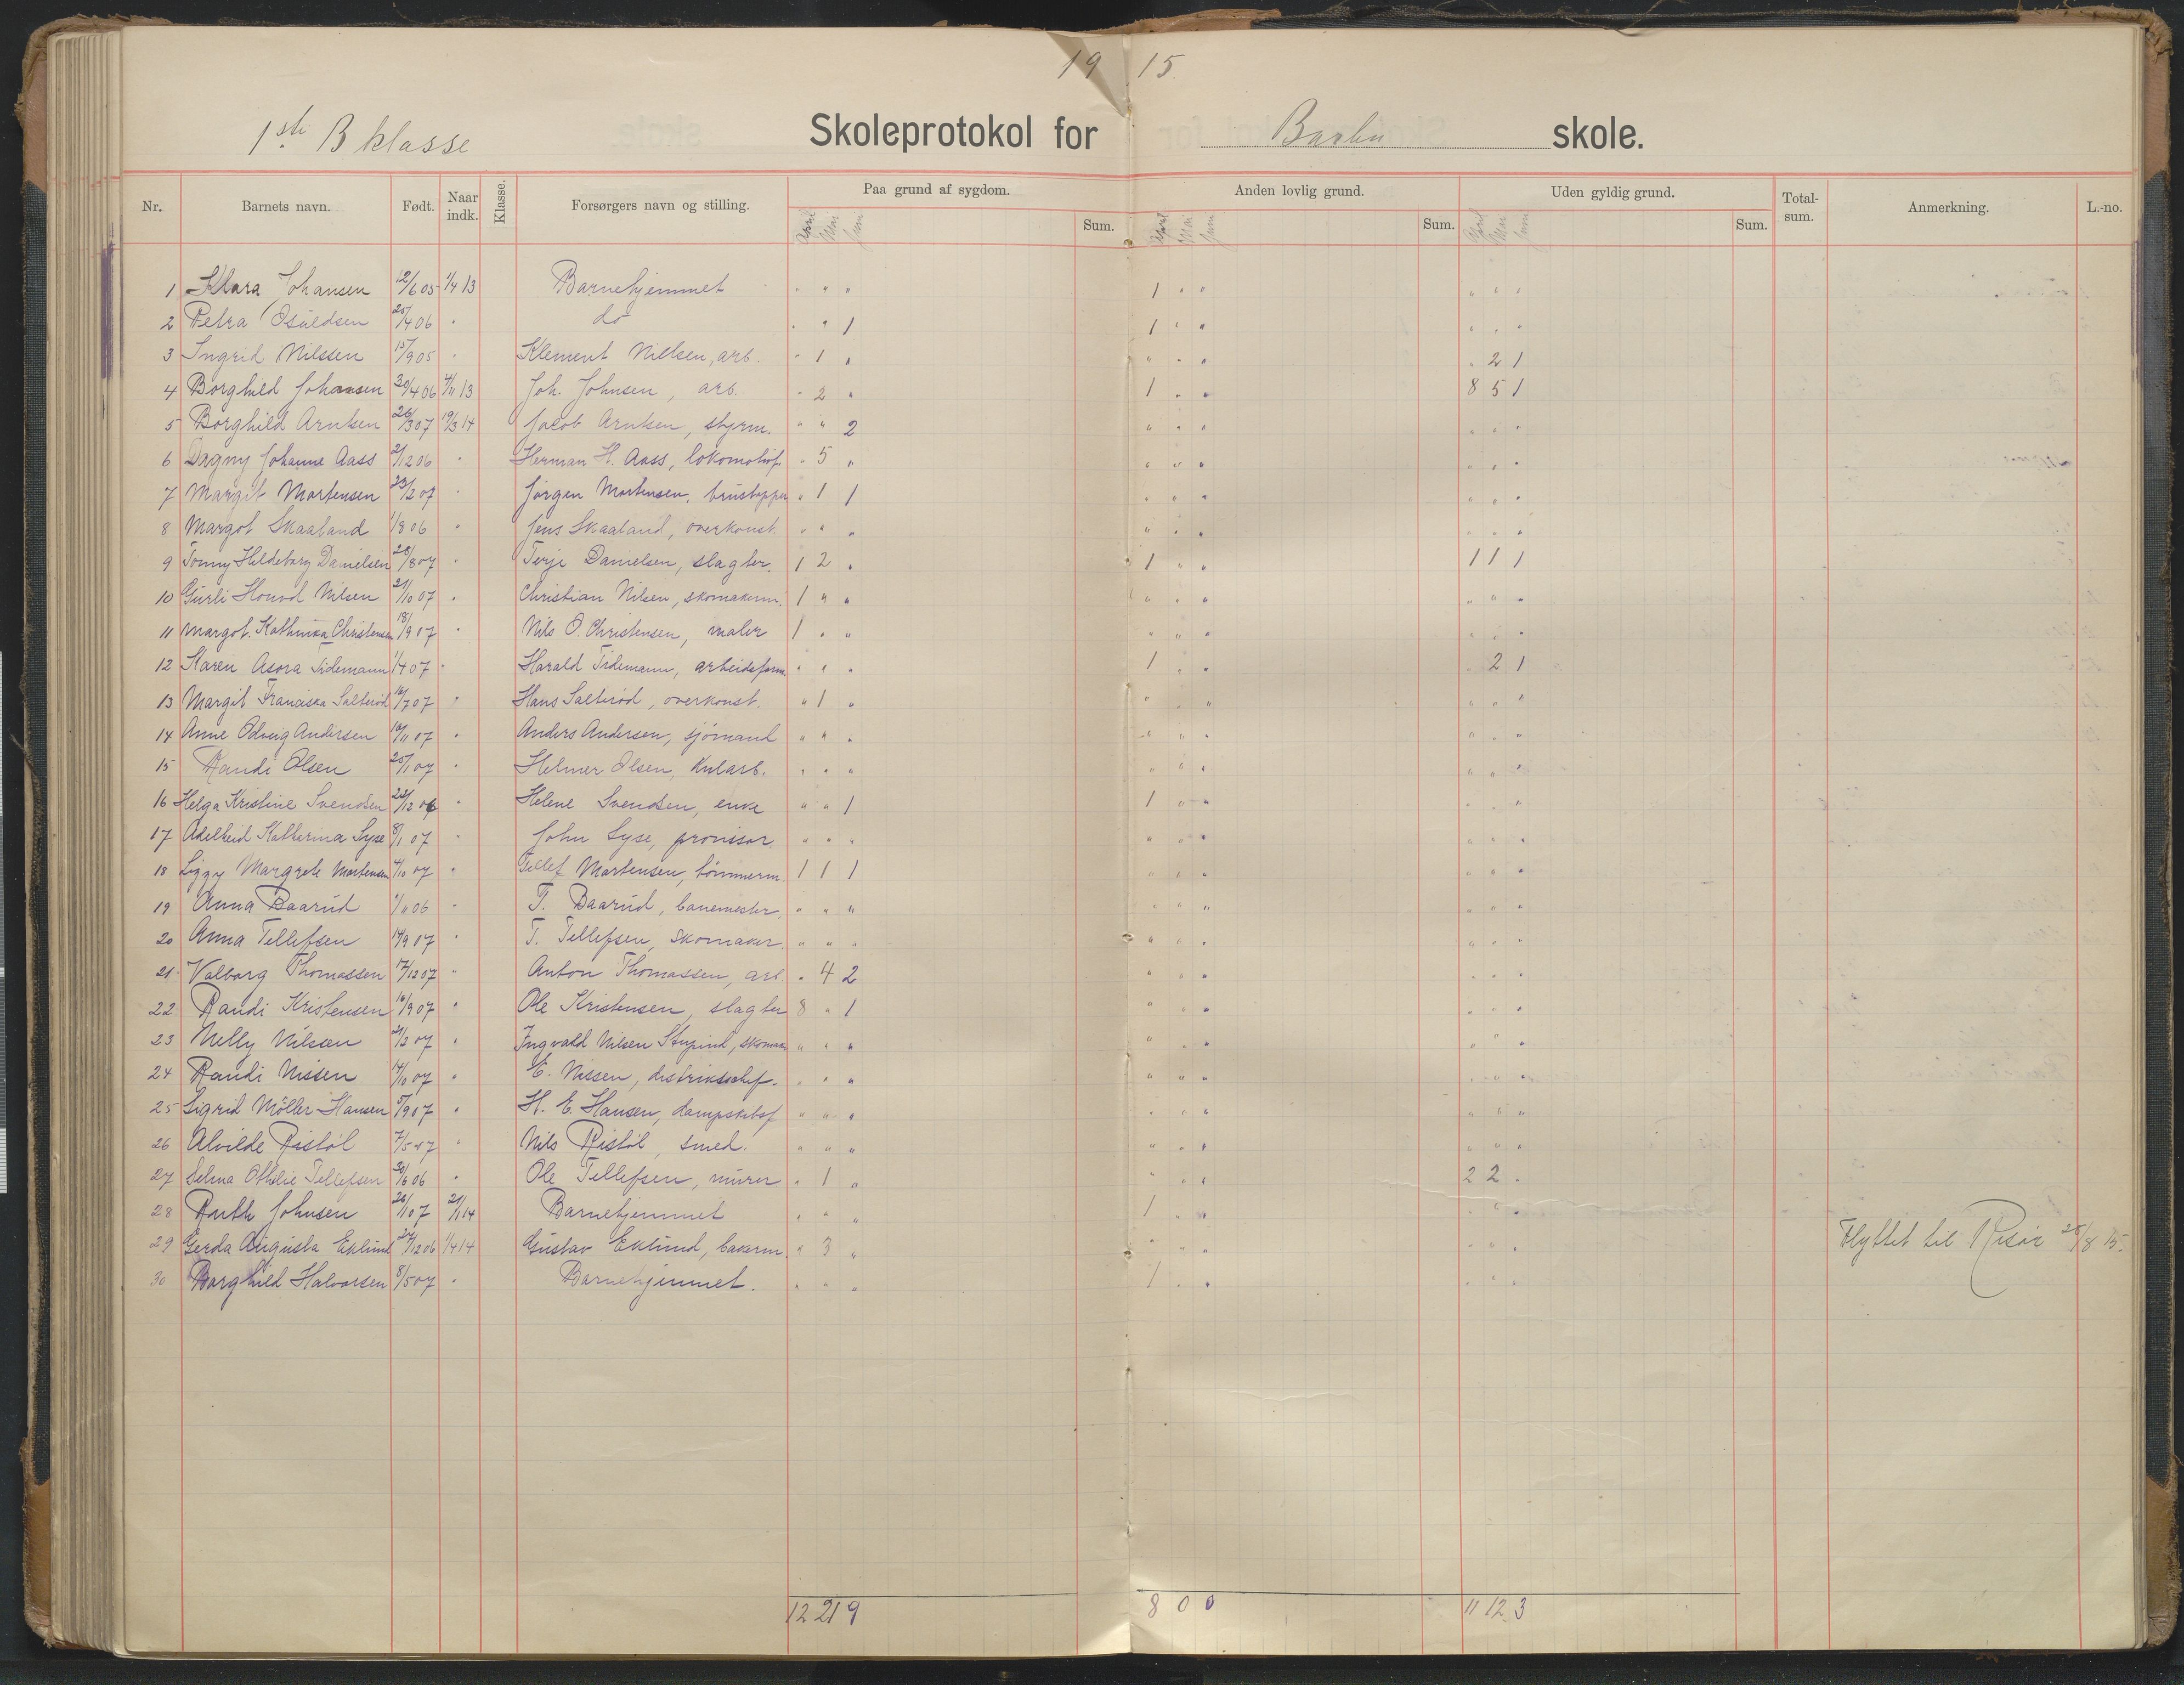 19 15
1ste B klasse Skoleprotokol for Barbu skole.
Nr. Barnets navn. Født. Naar indk. Klasse. Forsørgers navn og stilling. Paa grund af sygdom. Anden lovlig grund. Uden gyldig grund. Total-sum. Anmerkning. L.-no.
April Mai Juni Sum. April Mai Juni Sum. April Mai Juni Sum.
1 Klara Johansen 12/6 05 1/4 13 Barnehjemmet " " " 1 " " " " "
2 Petra Osuldsen 25/4 06 " do " " 1 1 " " " " "
3 Ingrid Nilssen 15/9 05 " Klement Nielsen, arb. " 1 " " " " " 2 1
4 Borghild Johansen 30/4 06 4/11 13 Joh. Johnsen, arb. " 2 " 1 " " 8 5 1
5 Borghild Arntsen 26/3 07 19/3 14 Jacob Arntsen, styrm. " " 2 " " " " " "
6 Dagny Johanne Aass 2/12 06 " Herman H. Aass, lokomotivf. " 5 " " " " " " "
7 Margit Mortensen 23/2 07 " Jørgen Mortensen, " 1 1 " " " " " "
8 Margot Skaaland 1/8 06 " Jens Skaaland, overkonst. " " " " " " " " "
9 Tonny Hildeborg Danielsen 28/8 07 " Terje Danielsen, slagter. 1 2 " 1 " " 1 1 1
10 Gurli Nilsen 21/10 07 " Christian Nilsen, skomakerm. 1 " " " " " " " "
11 Margot Kathinka Christensen 18/9 07 " Nils O. Christensen, maler 1 " " " " " " " "
12 Karen Asora Tidemann 1/4 07 " Harald Tidemann, arbeidsform. " " " 1 " " " 2 1
13 Margit Franciska Salterød 16/7 07 " Hans Salterød, overkonst. " 1 " " " " " " "
14 Anne Odveig Andersen 10/11 07 " Anders Andersen, sjømand " " " " " " " " "
15 Randi Olsen 25/1 07 " Helmer Olsen, kularb. " " " " " " " " "
16 Helga Kristine Svendsen 22/12 06 " Helene Svendsen, enke " " 1 1 " " " " "
17 Adelheid Katherina Syse 8/1 07 " John Syse, provisor " " " " " " " " "
18 Lizzy Margrete Mortensen 4/10 07 " Tellef Mortensen, tømmerm. 1 1 1 " " " " " "
19 Anna Baarud 1/11 06 " T. Baarud, banemester. " " " " " " " " "
20 Anna Tellefsen 14/9 07 " T. Tellefsen, skomaker " " " " " " " " "
21 Valborg Thomassen 17/12 07 " Anton Thomassen, arb " 4 2 " " " " " "
22 Randi Kristensen 16/9 07 " Ole Kristensen, slagter 8 " 1 " " " " " "
23 Nelly Nilsen 21/2 07 " Ingvald Nilsen Stupind, skomak. " " " " " " " " "
24 Randi Nissen 14/10 07 " E. Nissen, distriktschef. " " " " " " " " "
25 Sigrid Møller-Hansen 5/9 07 " H. E. Hansen, dampskibsf " " " " " " " " "
26 Alvilde Ristøl 7/5 07 " Nils Ristøl, smed. " " " " " " " " "
27 Selma Othilie Tellefsen 30/6 06 " Ole Tellefsen, murer " 1 " " " " 2 2 "
28 Ruth Johnsen 26/1 07 21/1 14 Barnehjemmet " " " 1 " " " " "
29 Gerda Augusta Eklund 24/12 06 1/4 14 Gustav Eklund, bakerm. " 3 " " " " " " " Flyttet til Risør 25/8 15.
30 Borghild Halvorsen 8/5 07 " Barnehjemmet. " " " 1 " " " " "
12 21 9 8 0 0 11 12 3